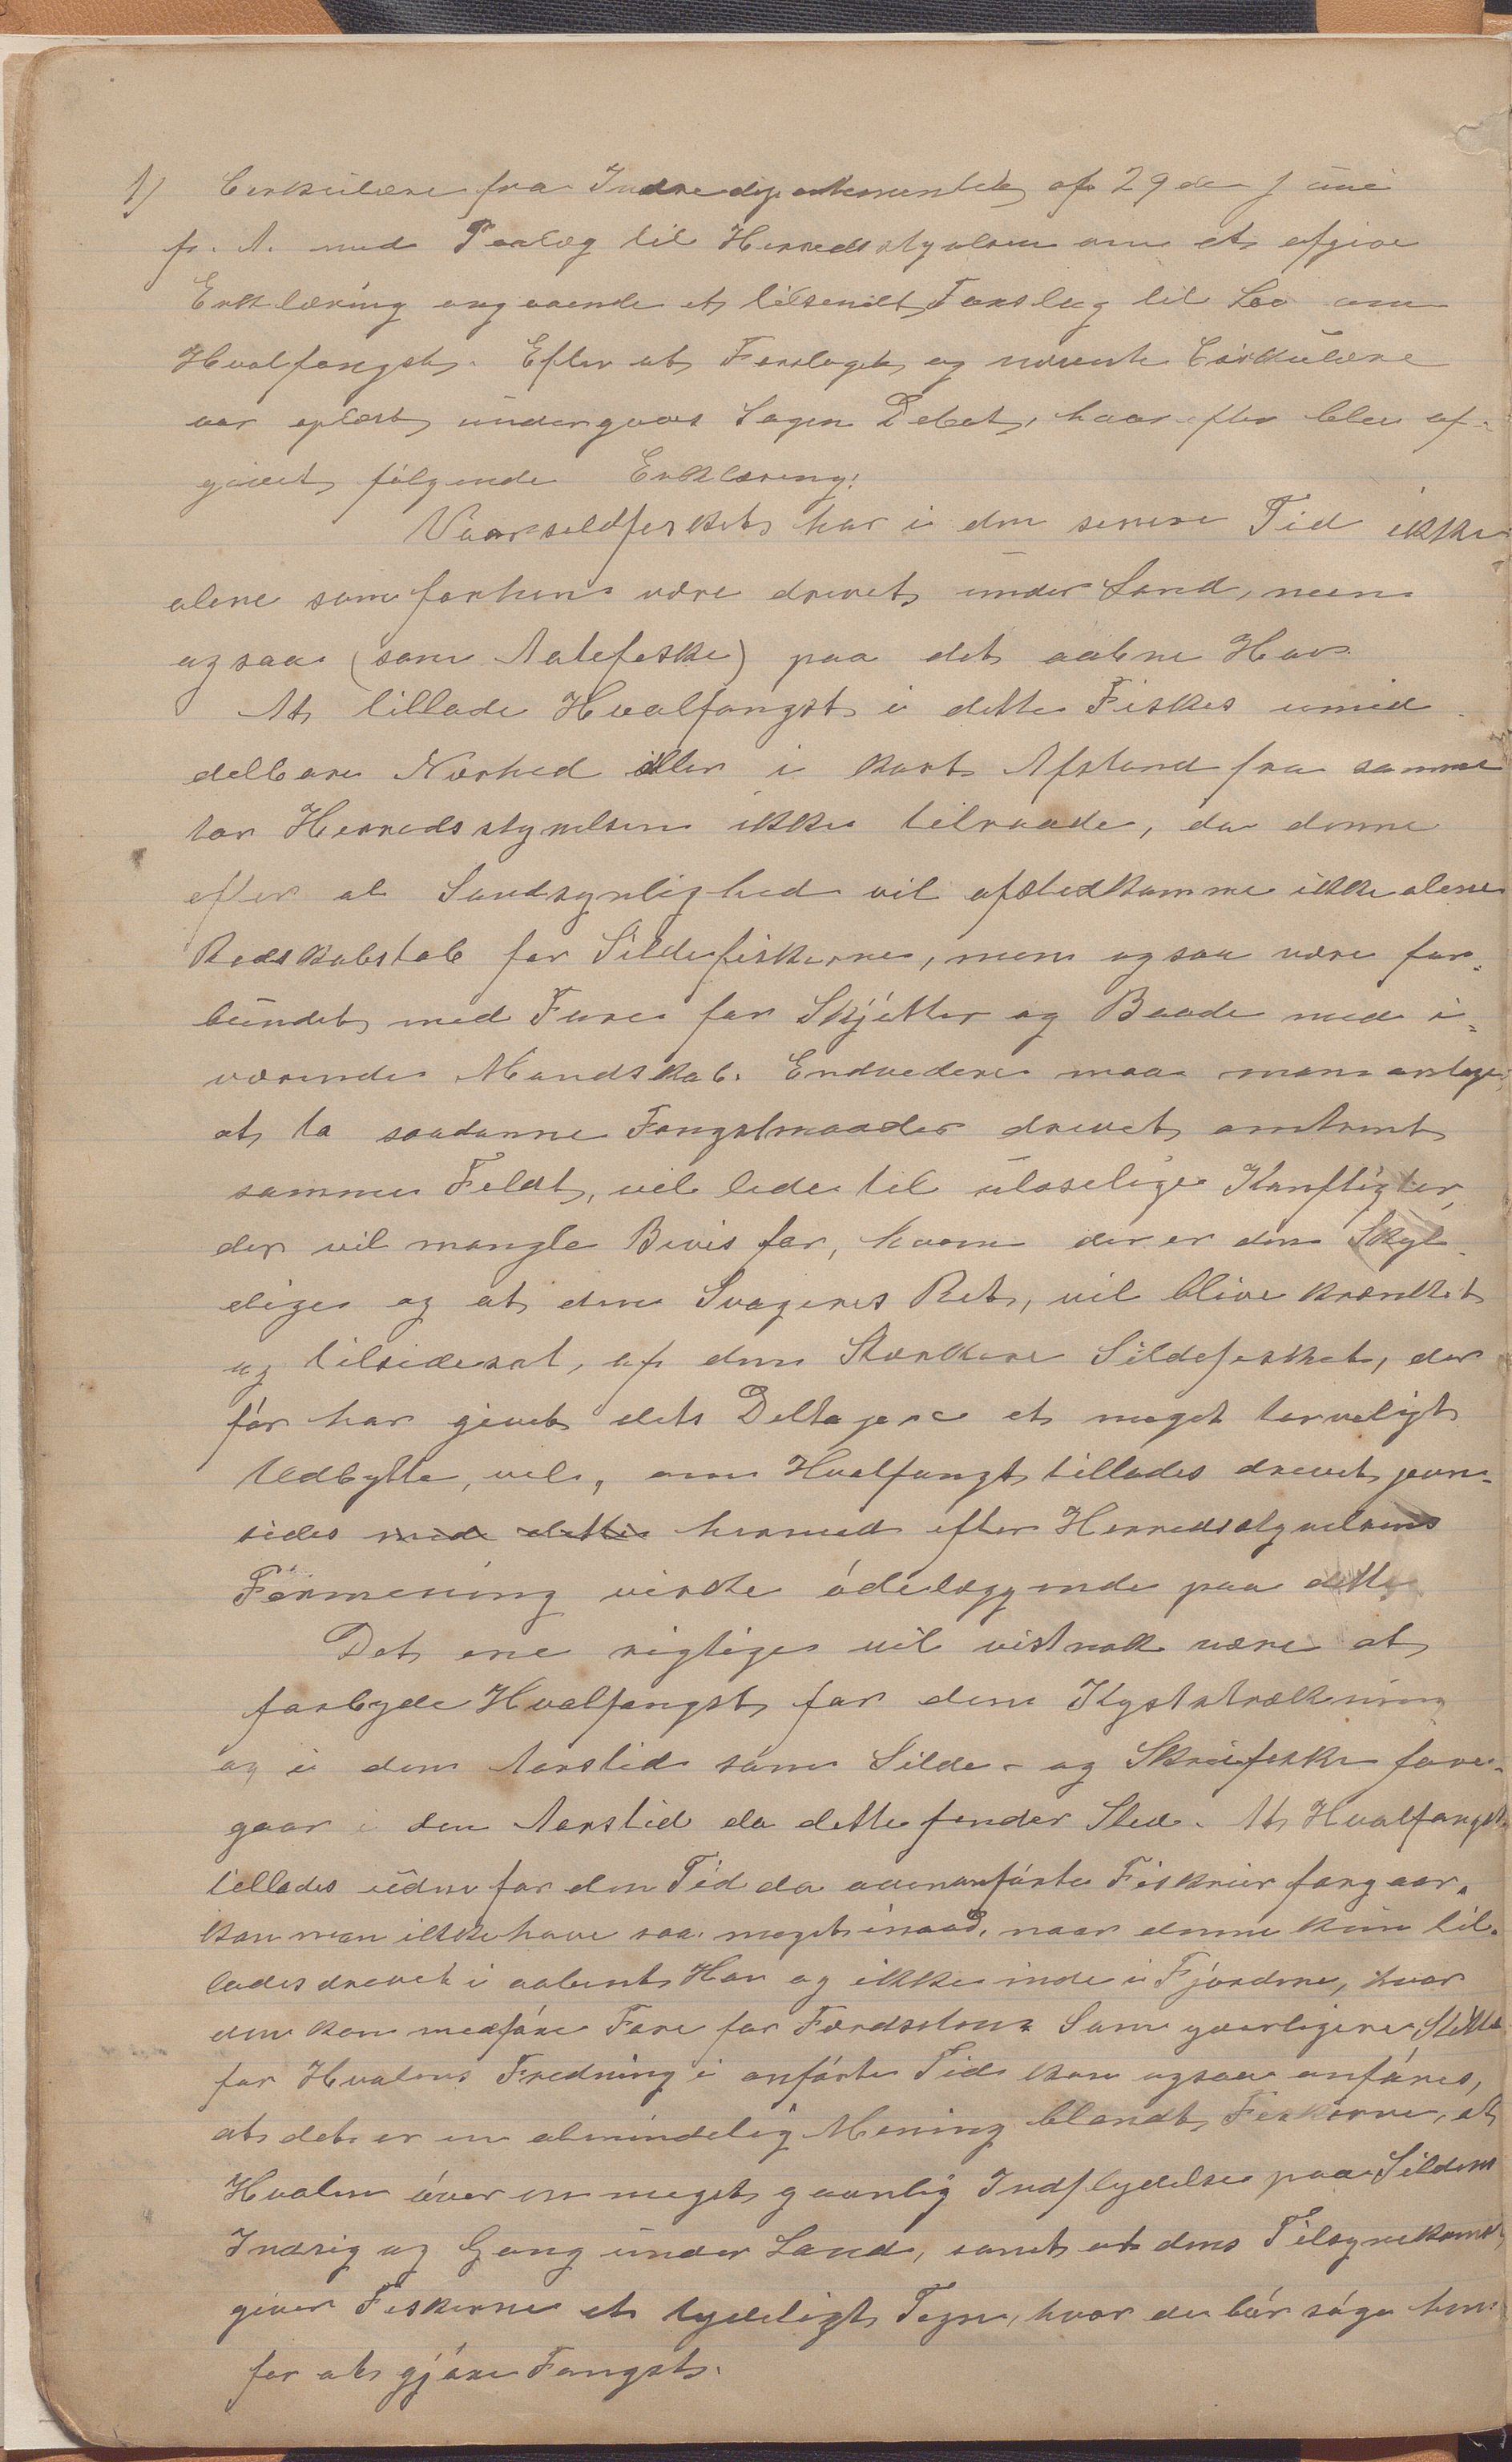 1) Cirkulære fra Indredepartementet af 29de Juni
f. A. med Paalæg til Herredsstyrelsen om at afgive
Erklæring angaaende et tilsendt Forslag til Lov om
Hvalfangst. Efter at Forslaget og nævnte Cirkulære
var oplæst, undergaves Sagen Debat, hvorefter blev af-
givet følgende Erklæring:
Vaarsildfisket har i den senere Tid ikke
alene som forhen være drevet under Land, men
ogsaa (som         ) paa det aabne Hav.
At tillade Hvalfangst i dette Fiskes umid
delbare Nærhed eller i kort Afstand fra samme
tør Herredsstyrelsen ikke tilraade, da denne
efter al Sandsynlighed vil afstedkomme ikke alene
Redskabstab for Sildefiskerne, men ogsaa være for-
bundet med Fare for Skjøtter og Baade med i-
værende Mandskab. Endvedere maa man antage,
at to saadanne Fangstmaader drevet omtrent
samme Feldt, vil lede til uløselige Konfligter,
der vil mangle Bevis for, hvem der er den Skyl-
dige og at den Svageres Ret, vil blive krænket
og tilsidesat, af den Stærkere Sildefisket, der
før har givet dets Deltagere et meget             
Udbytte, vil, om Hvalfangst tillades drevet jevn-
sides med dette hermed efter Herredsstyrelsens
Formening virke ødelæggende paa dette.
Det ene rigtige vil vistnok være at
forbyde Hvalfangst for den Kyststrækning
og i den Aarstid som Silde- og Skreifiske fore-
gaar i den Aarstid da dette finder Sted. At Hvalfangst
tillades udenfor den Tid da ovenanførte Fiskerier forgaar,
kan man ikke have saa meget imod, naar denne kun til-
lades drevet i aabent Hav og ikke inde i Fjordene, hvor
den kan medføre Fare for Færdselen. Som yderligere Støtte
for Hvalens Fredning i anførte Tid kan ogsaa anføres,
at det er en almindelig Mening blandt Fiskerne, at
Hvalen øver en meget gavnlig Indflydelse paa Sildens
Indsig og Gang under Land, samt at dens Tilsynekomst
giver Fiskerne et tydeligt Tegn, hvor de bør søge hen
for at gjøre Fangst.